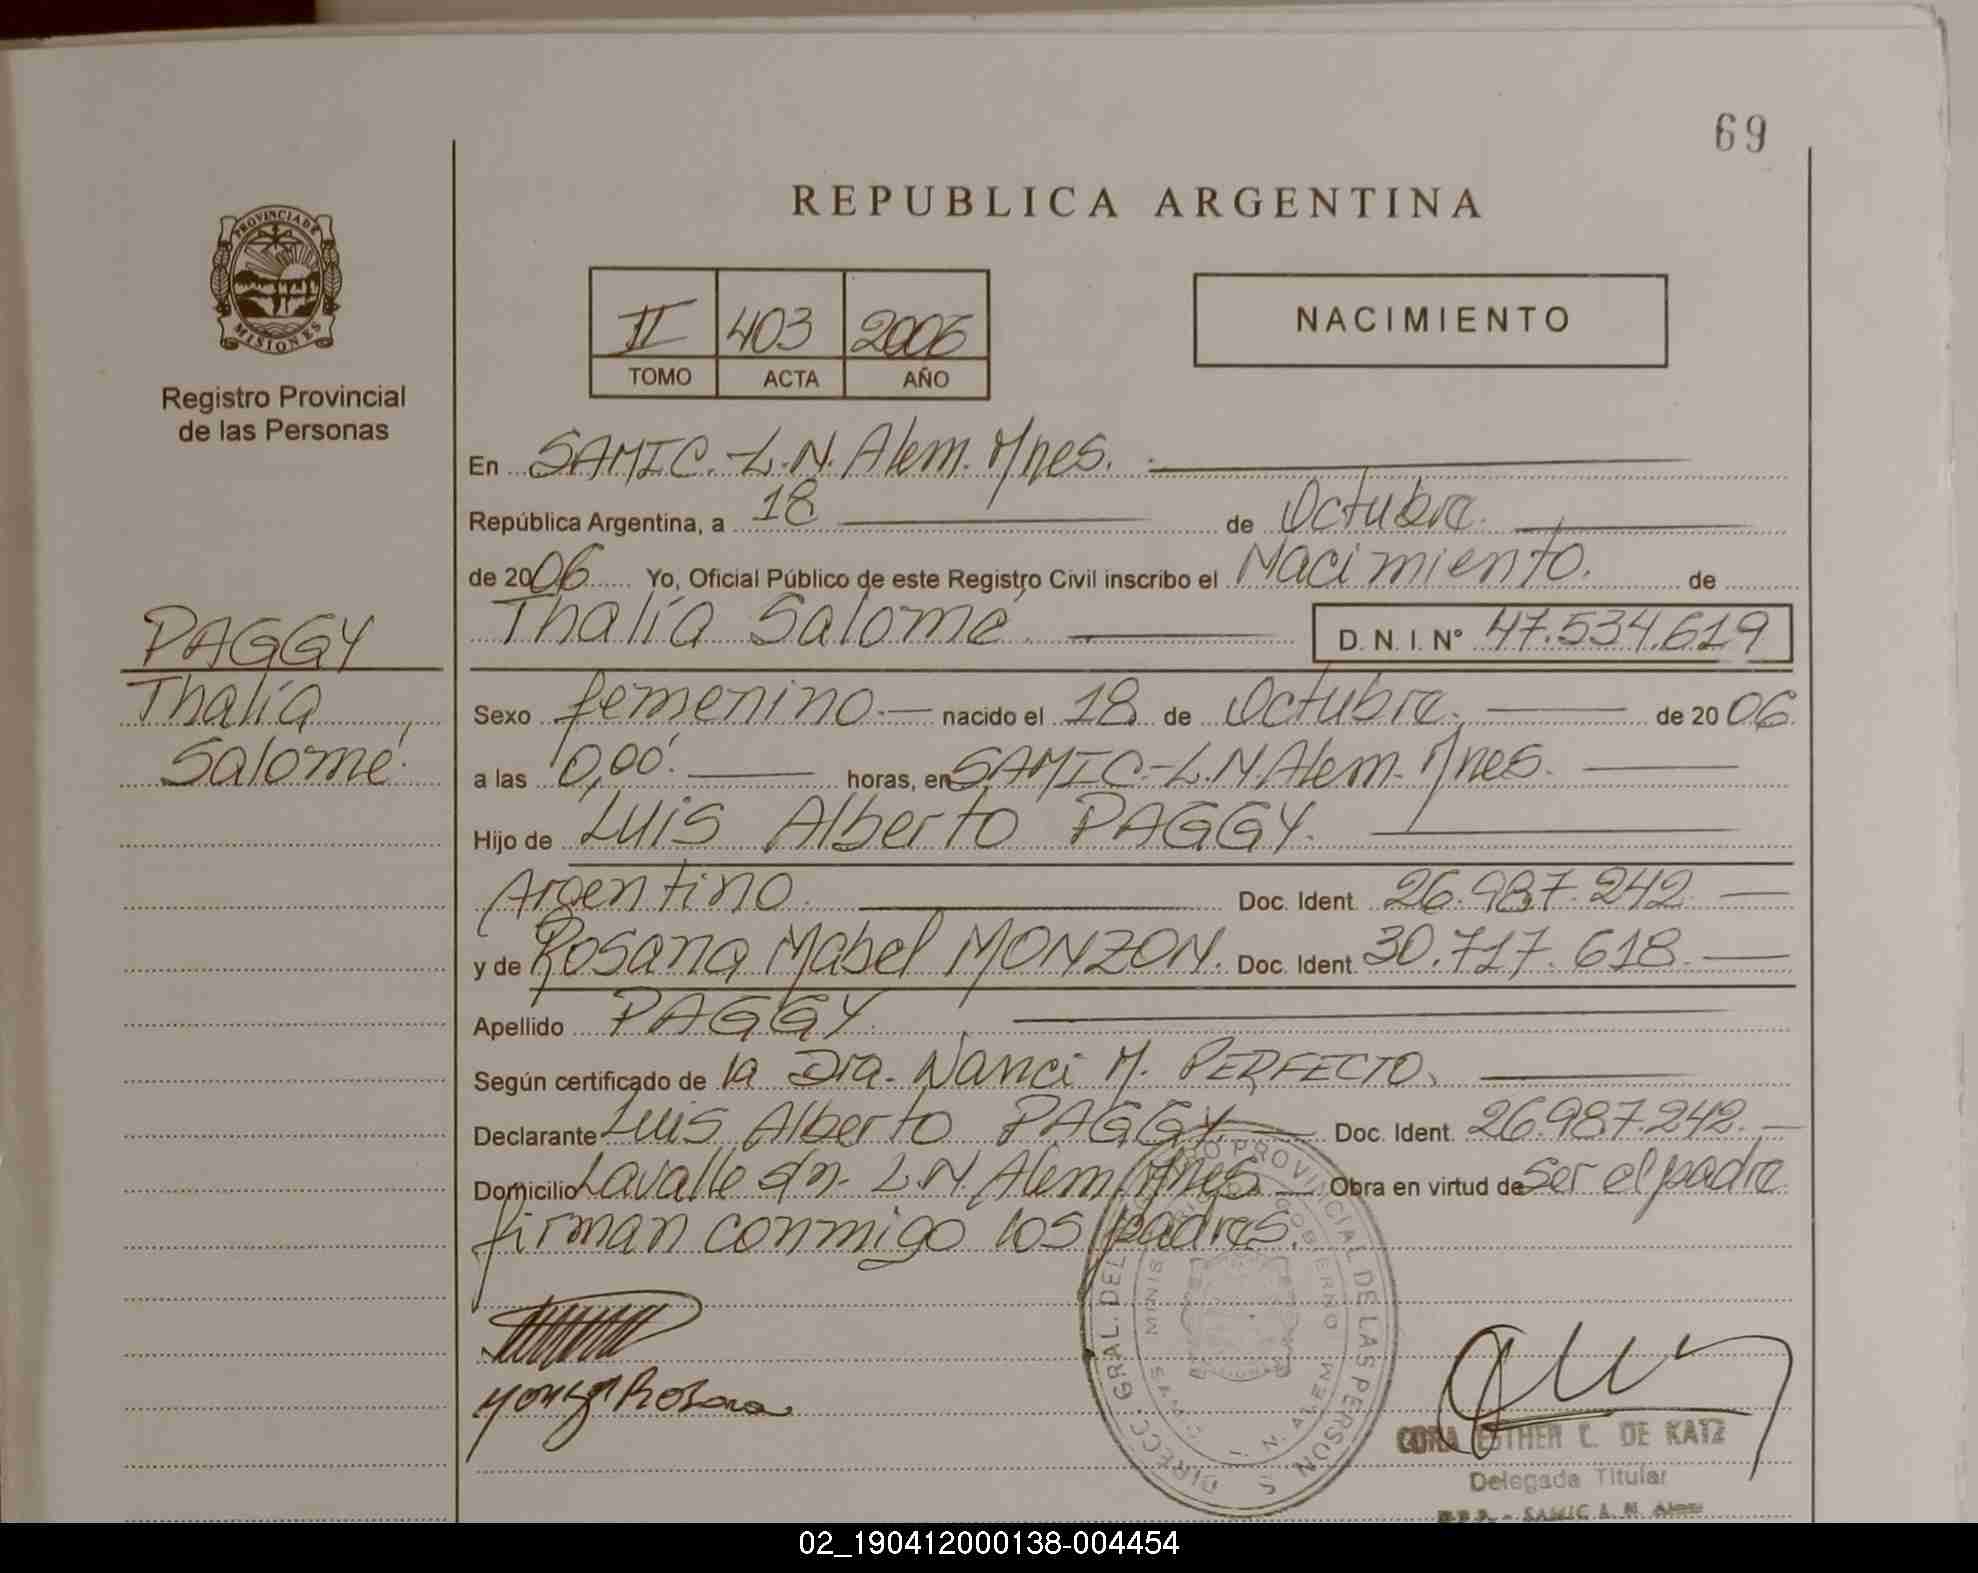 69
REPUBLICA ARGENTINA
PROVINCIA DE
MISIONES
Registro Provincial
de las Personas
II 403 2006
TOMO ACTA AÑO
NACIMIENTO
En SAMIC.-L.N. Alem. Mnes.
República Argentina, a 18 de Octubre.
de 2006 Yo, Oficial Público de este Registro Civil inscribo el Nacimiento. de
Thalía Salomé D. N. I. N° 47.534.619
PAGGY
Thalía
Salomé.
Sexo femenino.- nacido el 18 de Octubre. de 2006.
a las 0,00. horas, en SAMIC.-L.N. Alem. Mnes.
Hijo de Luis Alberto PAGGY.
Argentino. Doc. Ident. 26.987.242
y de Rosana Mabel MONZON. Doc. Ident. 30.717.618
Apellido PAGGY.
Según certificado de la Dra. Nanci M. PERFECTO.
Declarante Luis Alberto PAGGY. Doc. Ident. 26.987.242.
Domicilio Lavalle s/n. L.N. Alem. Mnes. Obra en virtud de ser el padre
firman conmigo los padres.
DIRECC. GRAL. DEL PROVINCIAL DE LAS PERSON
GOBIERNO
L. N. ALEM
Rosana
CORA ESTHER C. DE KATZ
Delegada Titular
SAMIC L. N. Alem
02_190412000138-004454